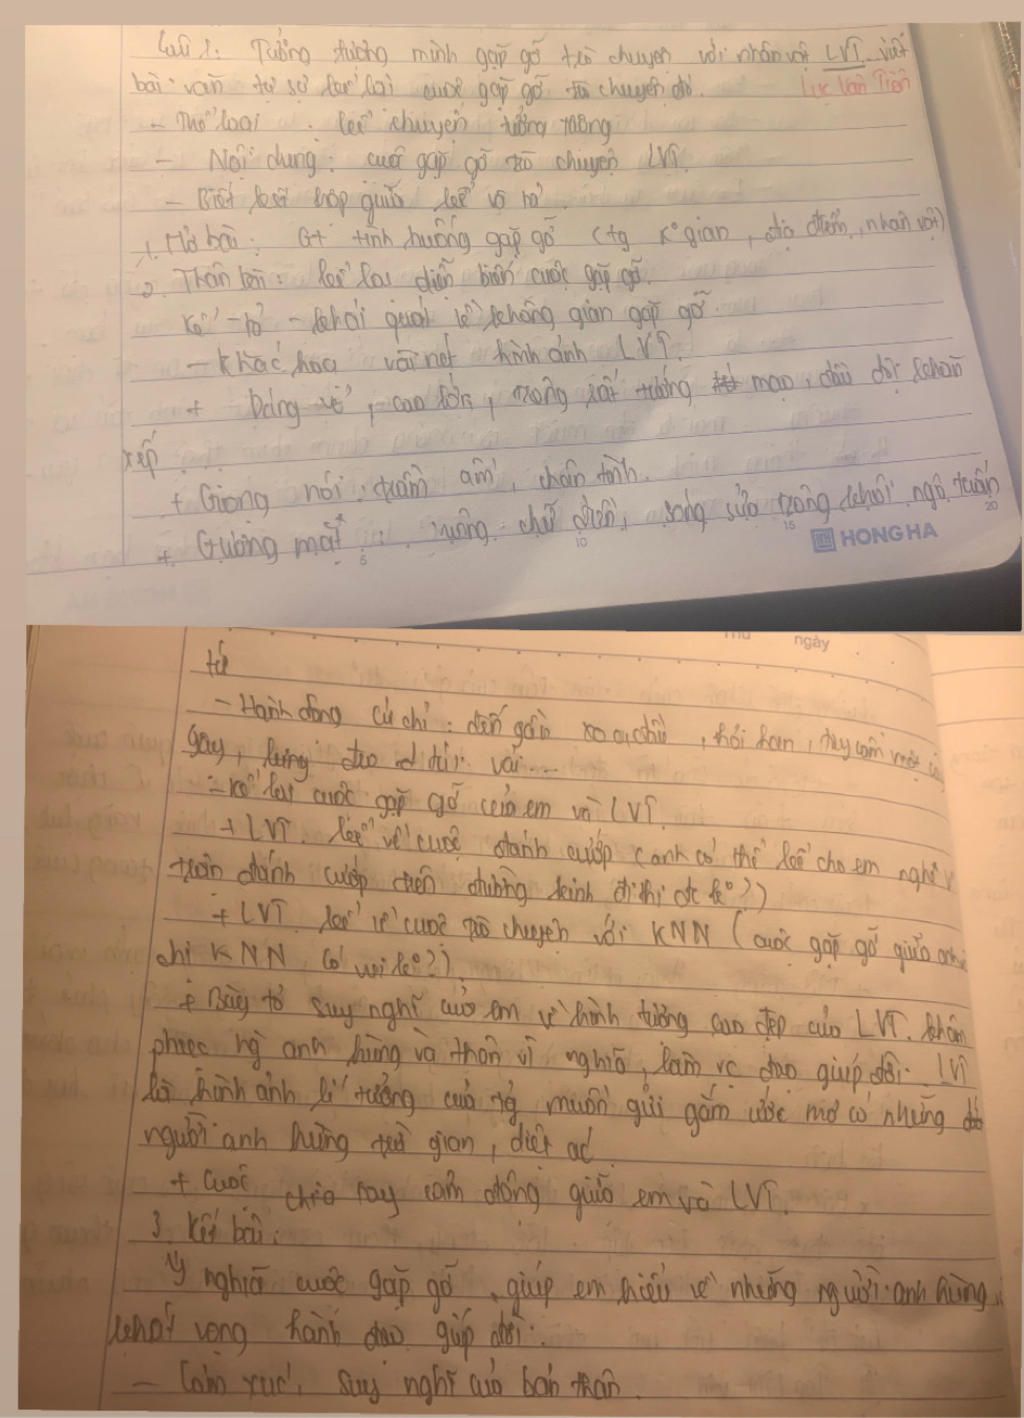 Câu 1: Tưởng tượng mình gặp gỡ trò chuyện với nhân vật LVT. viết
bài văn tự sự kể lại cuộc gặp gỡ trò chuyện đó. Lục Vân Tiên
- Thể loại : kể chuyện tưởng tượng
- Nội dung: cuộc gặp gỡ trò chuyện LVT.
- Biết kết hợp giữa kể và tả.
1. Mở bài: Gt tình huống gặp gỡ (tg k° gian, địa điểm, nhân vật)
2. Thân bài: kể lại diễn biến cuộc gặp gỡ.
Kể - tả - khái quát về không gian gặp gỡ.
- Khắc họa vài nét hình ảnh LVT.
+ Dáng vẻ, cao lớn, trông rất tướng mạo, đầu đội khăn
xếp
+ Giọng nói: trầm ấm, chân tình.
+ Gương mặt: vuông chữ điền, sáng sủa trông khôi ngô tuấn
5 10 15 20
HONG HA
Thứ ngày
tú
- Hành động cử chỉ: đến gần xoa đầu, hỏi han, tay cầm một
gậy, lưng đeo túi vải...
- Kể lại cuộc gặp gỡ của em và LVT.
+ LVT kể về cuộc đánh cướp (anh có thể kể cho em nghe
trận đánh cướp trên đường kinh đi thi đc k°?)
+ LVT kể về cuộc trò chuyện với KNN (cuộc gặp gỡ giữa anh
chị KNN có vui k°?)
+ Bày tỏ suy nghĩ của em về hình tượng cao đẹp của LVT. khâm
phục ng anh hùng và thân vì nghĩa, làm vc đạo giúp đời. LVT
là hình ảnh lí tưởng của tg muốn gửi gắm ước mơ có những
người anh hùng trừ gian, diệt ác
+ Cuộc chia tay cảm động giữa em và LVT.
3. Kết bài:
Ý nghĩa cuộc gặp gỡ, giúp em hiểu về những người anh hùng,
khát vọng hành đạo giúp đời.
- Cảm xúc, suy nghĩ của bản thân.